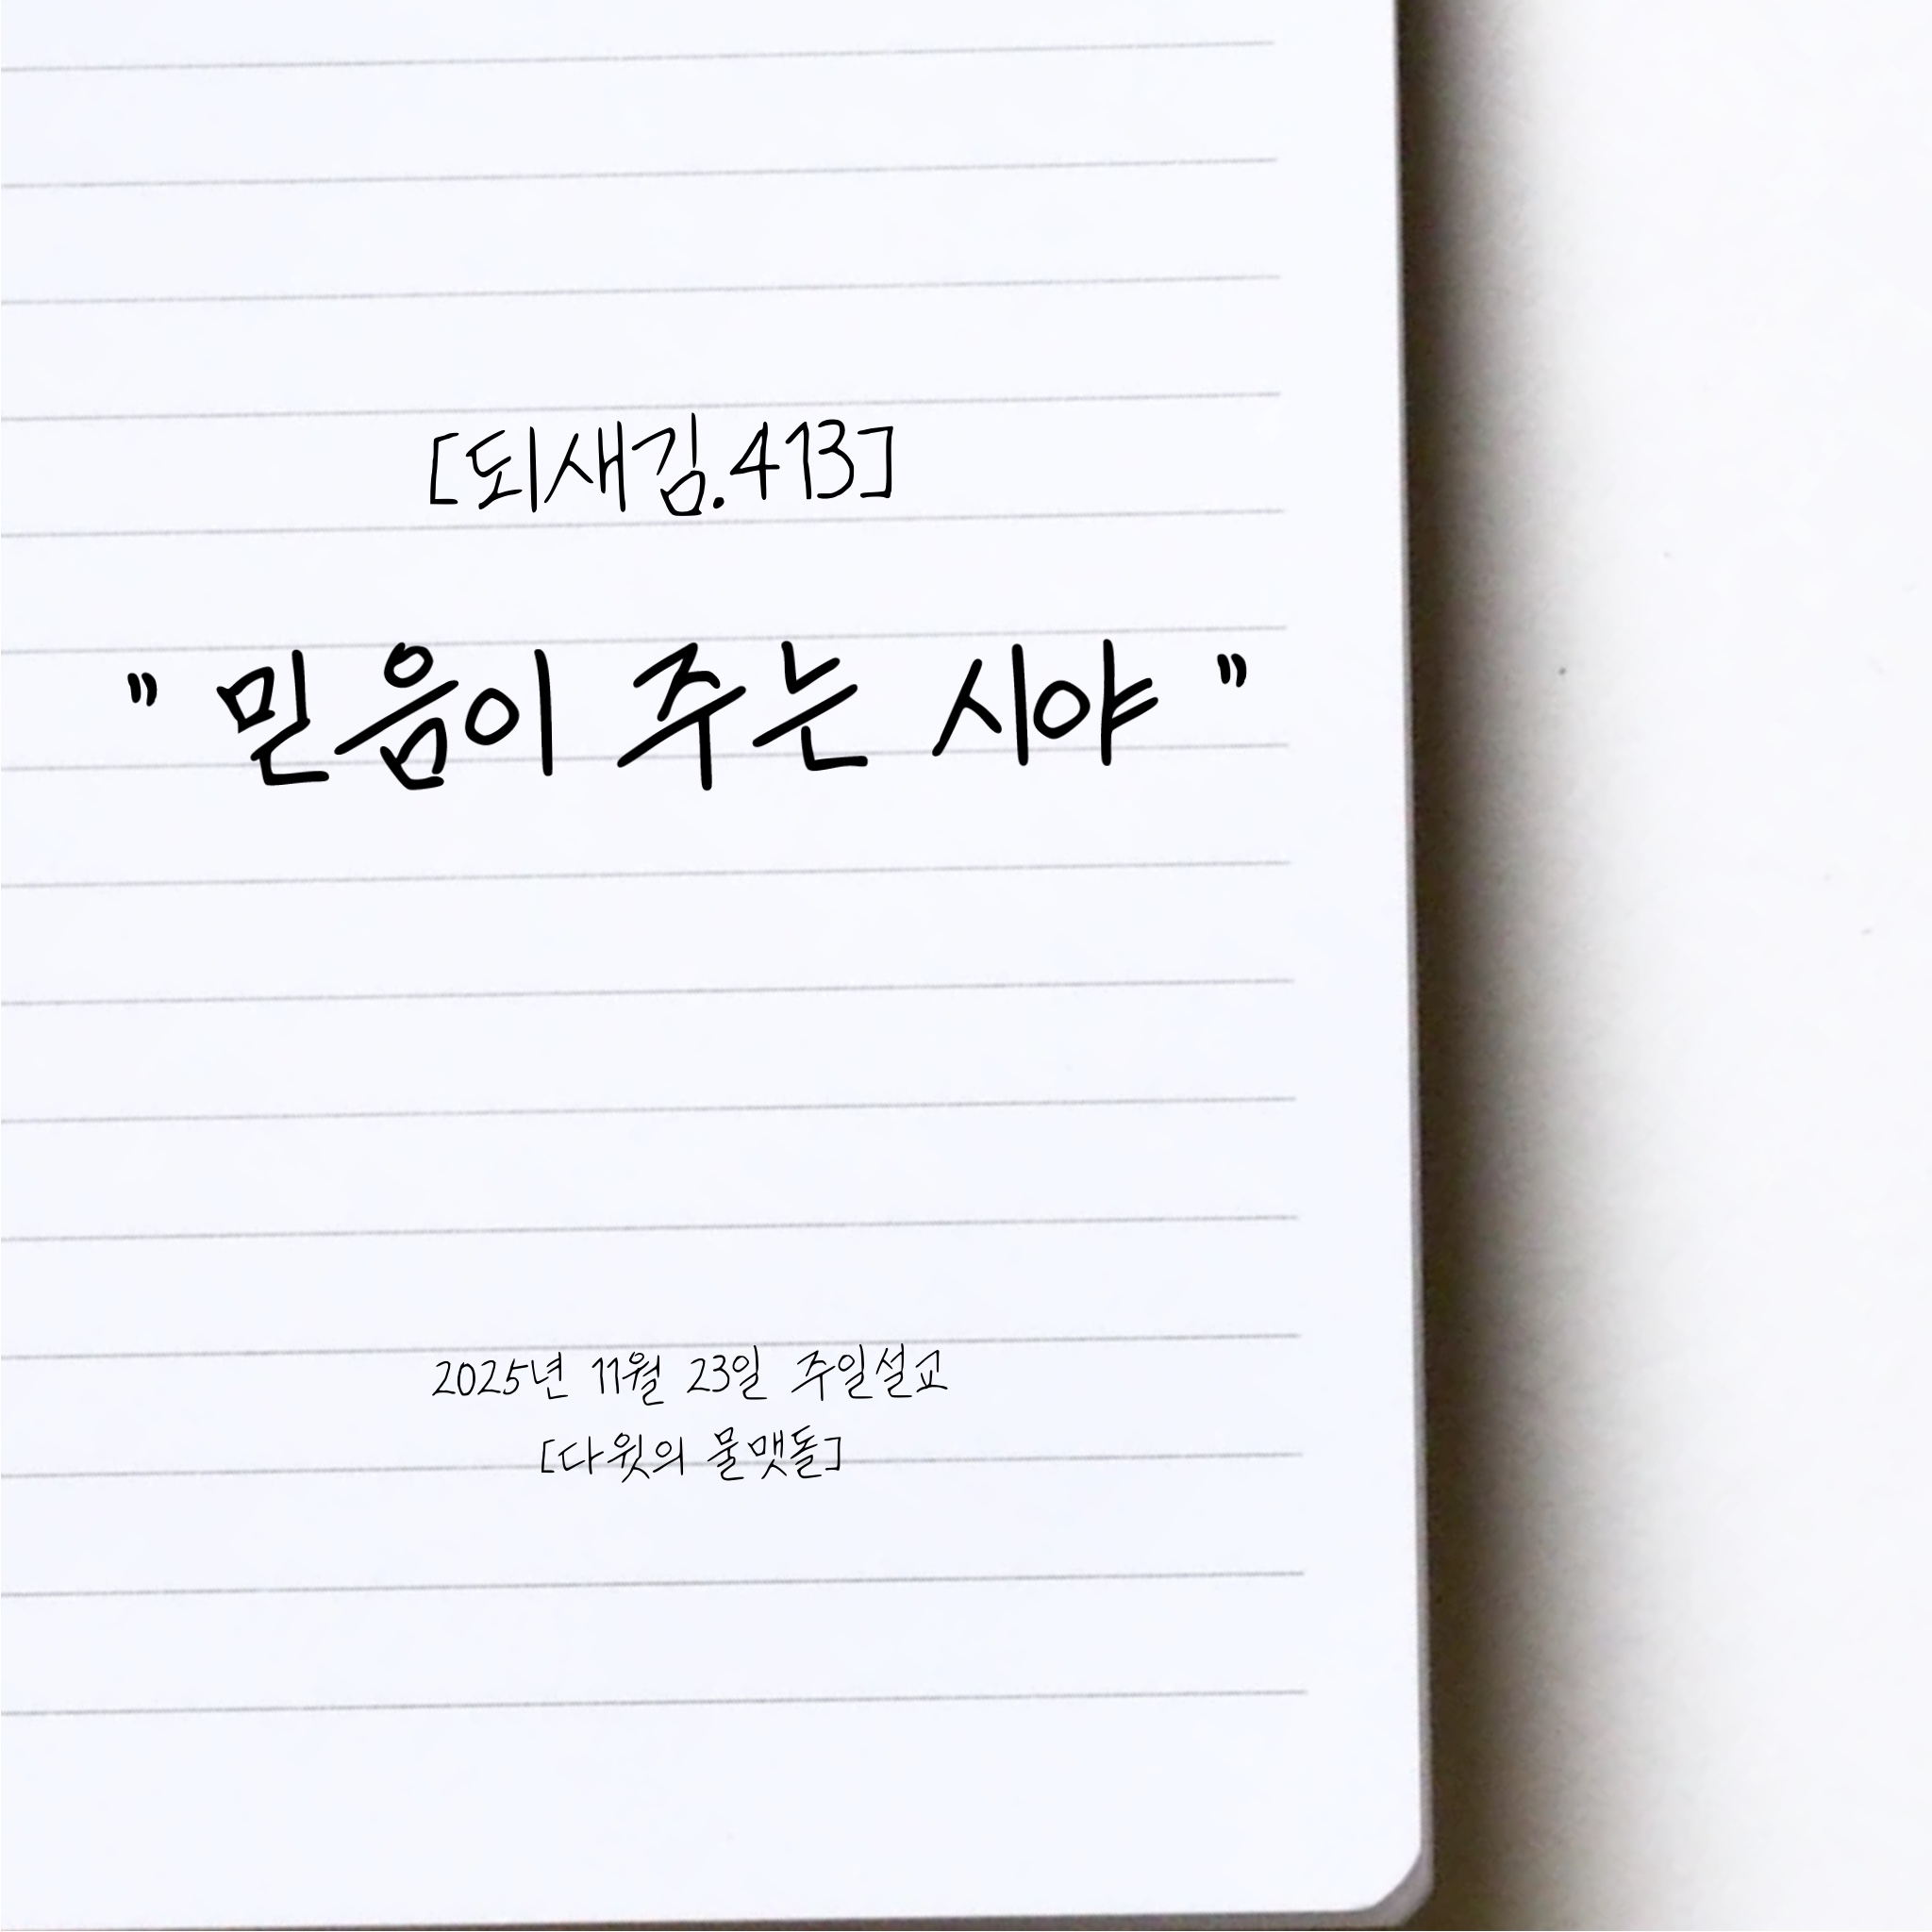 [되새김.413]
" 믿음이 주는 시야 "
2025년 11월 23일 주일설교
[다윗의 물맷돌]